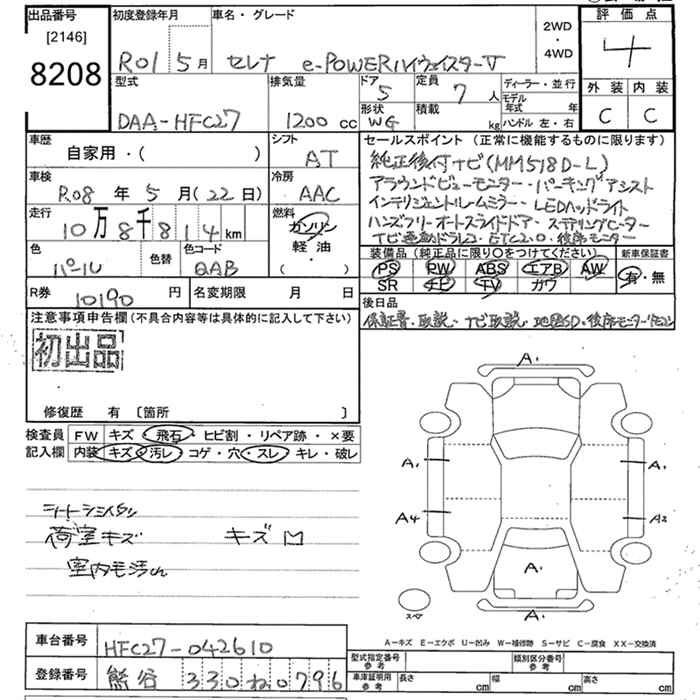 出品番号
[2146]
8208
初度登録年月
R01 5月
車名・グレード
セレナ e-POWERハイウェイスターV
2WD
・
4WD
評価点
4
外装 内装
C C
型式
DAA-HFC27
排気量
1200 cc
ドア
5
定員
7 人
形状
WG
積載
kg
ディーラー・並行
モデル年式 年
ハンドル 左・右
車歴
自家用・( )
シフト
AT
車検
R08 年 5 月 (22日)
冷房
AAC
走行
10万8千814 km
燃料
ガソリン
軽油
( )
色
パール
色替
色コード
QAB
R券
10190 円
名変期限 月 日
セールスポイント (正常に機能するものに限ります)
純正後付ナビ(MM518D-L)
アラウンドビューモニター・パーキングアシスト
インテリジェントルームミラー・LEDヘッドライト
ハンズフリーオートスライドドア・ステアリングヒーター
ナビ連動ドラレコ・ETC2.0・後席モニター
装備品 (純正品に限り○をつけてください)
新車保証書
PS PW ABS エアB AW
SR ナビ TV カワ
有・無
後日品
保証書・取説・ナビ取説・地図SD・後席モニターリモコン
注意事項申告欄(不具合内容等は具体的に記入して下さい)
初出品
修復歴 有 [箇所 ]
検査員記入欄
FW キズ・飛石・ヒビ割・リペア跡・×要
内装 キズ・汚レ・コゲ・穴・スレ・キレ・破レ
荷室キズ キズM
室内毛汚れ
A1
A1
A1
A4
A2
A1
A1
スペア
A-キズ E-エクボ U-凹み W-補修跡 S-サビ C-腐食 XX-交換済
車台番号
HFC27-042610
登録番号
熊谷 330 ね 0796
型式指定番号
参考
類別区分番号
参考
車庫証明用
参考
長さ cm 幅 cm 高さ cm